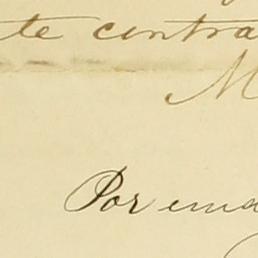 te contra
M
Por